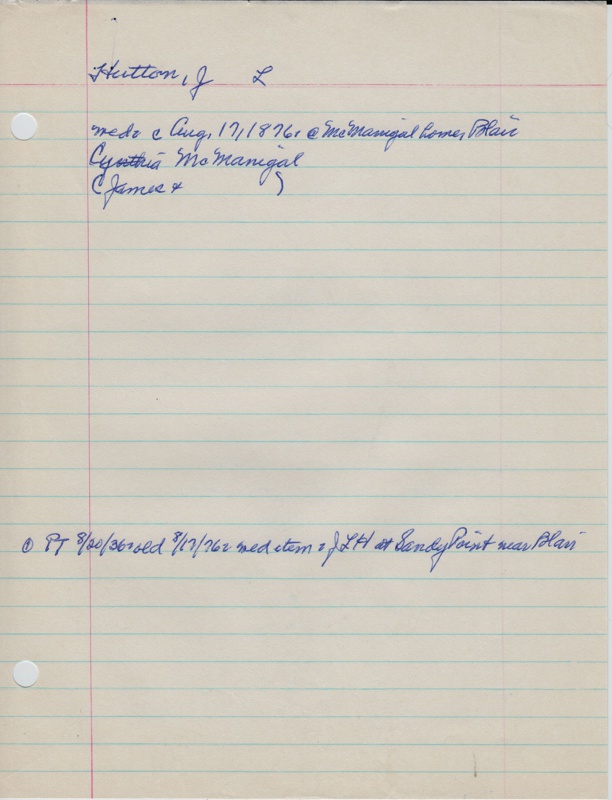 Hutton, J L
med: c Aug. 17, 1876: @ McManigal home, Blair
Cynthia McManigal
(James & )
① PT 8/20/36: old 8/17/76: wed item: J L H at Sandy Point near Blair